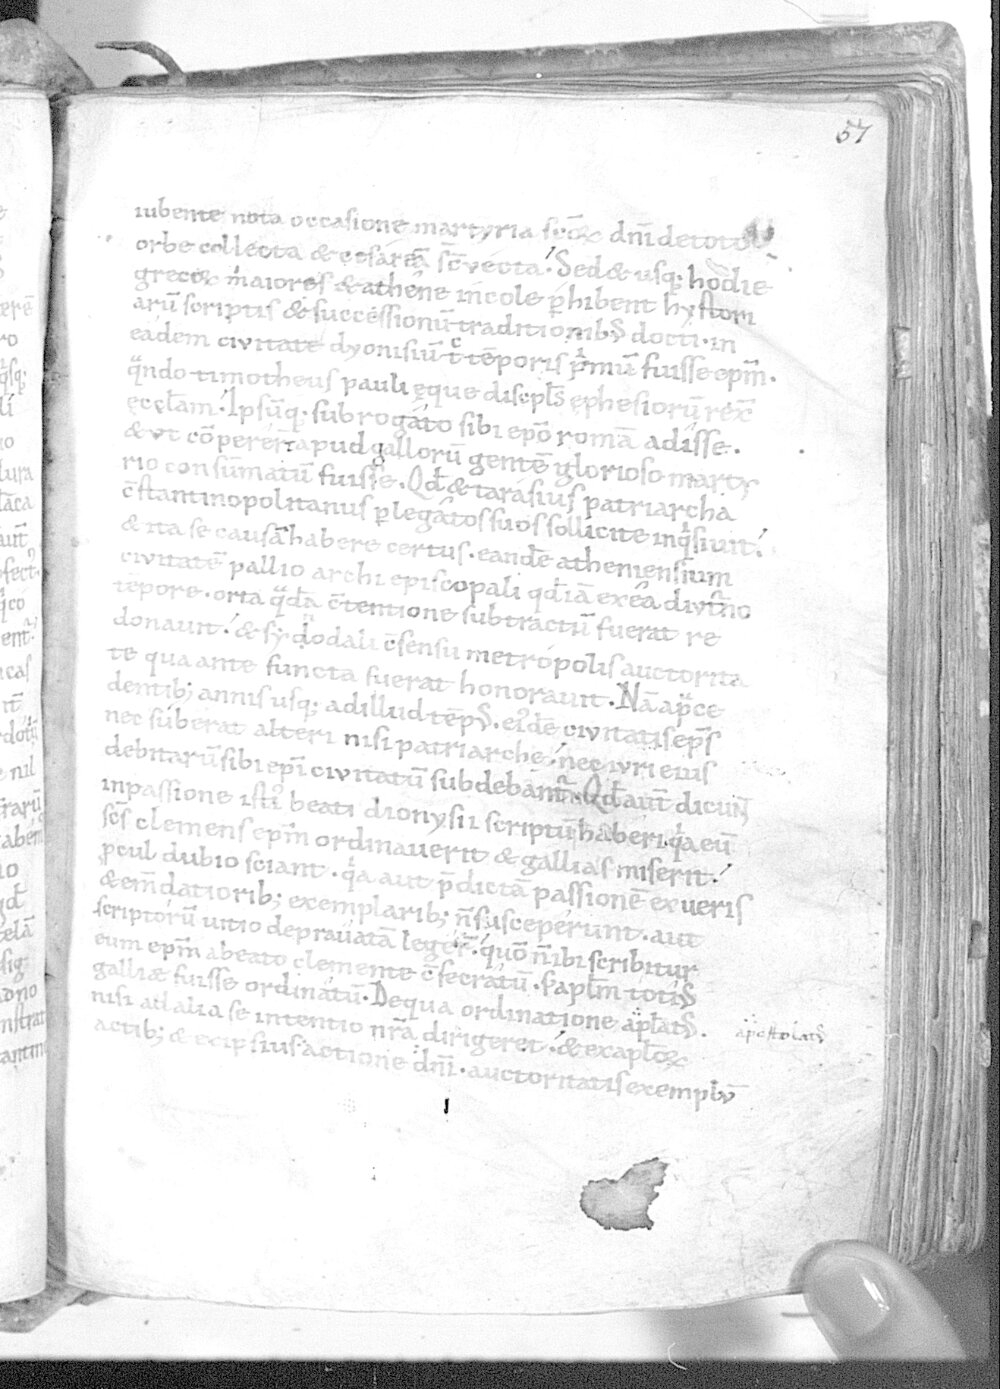 57
iubente nota occasione martyria sc̄oꝝ dn̄i de toto
orbe collecta & cesaream s̄ vecta. Sed & usq; hodie
grecoꝝ maiores & athene incole ꝑhibent hystori
arū scriptis & successionū traditionibꝰ docti. in
eadem civitate dyonisiū tc̄ tēporis pͥmū fuisse epm̄.
qͣndo timotheus pauli ęque discipl̄s ephesiorū rexͭ
ęccl̄am. Ipsūq; subrogato sibi epō romā adisse.
& ut cōpererͭ apud gallorū gentē glorioso marty
rio consūmatū fuisse. Qd̄ & tarasius patriarcha
c̄stantinopolitanus ꝑ legatos suos sollicite inqͥsiuit.
& ita se causā habere certus. eandē atheniensium
civitatē pallio archiepiscopali qd̄ iā ex ea divino
tēpore. orta qͣdā c̄tentione subtractū fuerat re
donauit. & synodali c̄sensu metropolis auctorita
te qua ante functa fuerat honorauit. Nā a pͣce
dentib; annis usq; ad illud tēpꝰ. eiꝰdē civitatis ep̄s
nec suberat alteri nisi patriarche. nec iuri eius
debitarū sibi epī civitatū subdebantͬ. Qd̄ aut̄ dicunͭ
in passione istiꝰ beati dionysii scriptū haberi. qͥa eū
sc̄s clemens epm̄ ordinaverit & gallias miserit.
ꝓcul dubio sciant. qͥa aut p̄dictā passionē ex ueris
& em̄datiorib; exemplarib; n̄ susceperunt. aut
scriptorū uitio deprauatā legerͭ. quō n̄ ibi scribitur
eum epm̄ a beato clemente c̄secratū. s; apl̄m totiꝰ
galliæ fuisse ordinatū. De qua ordinatione apl̄atꝰ.
apostolatꝰ
nisi ad alia se intentio nr̄a dirigeret. & ex apl̄oꝝ
actib; & ex ipsius actione dn̄i. auctoritatis exemplū